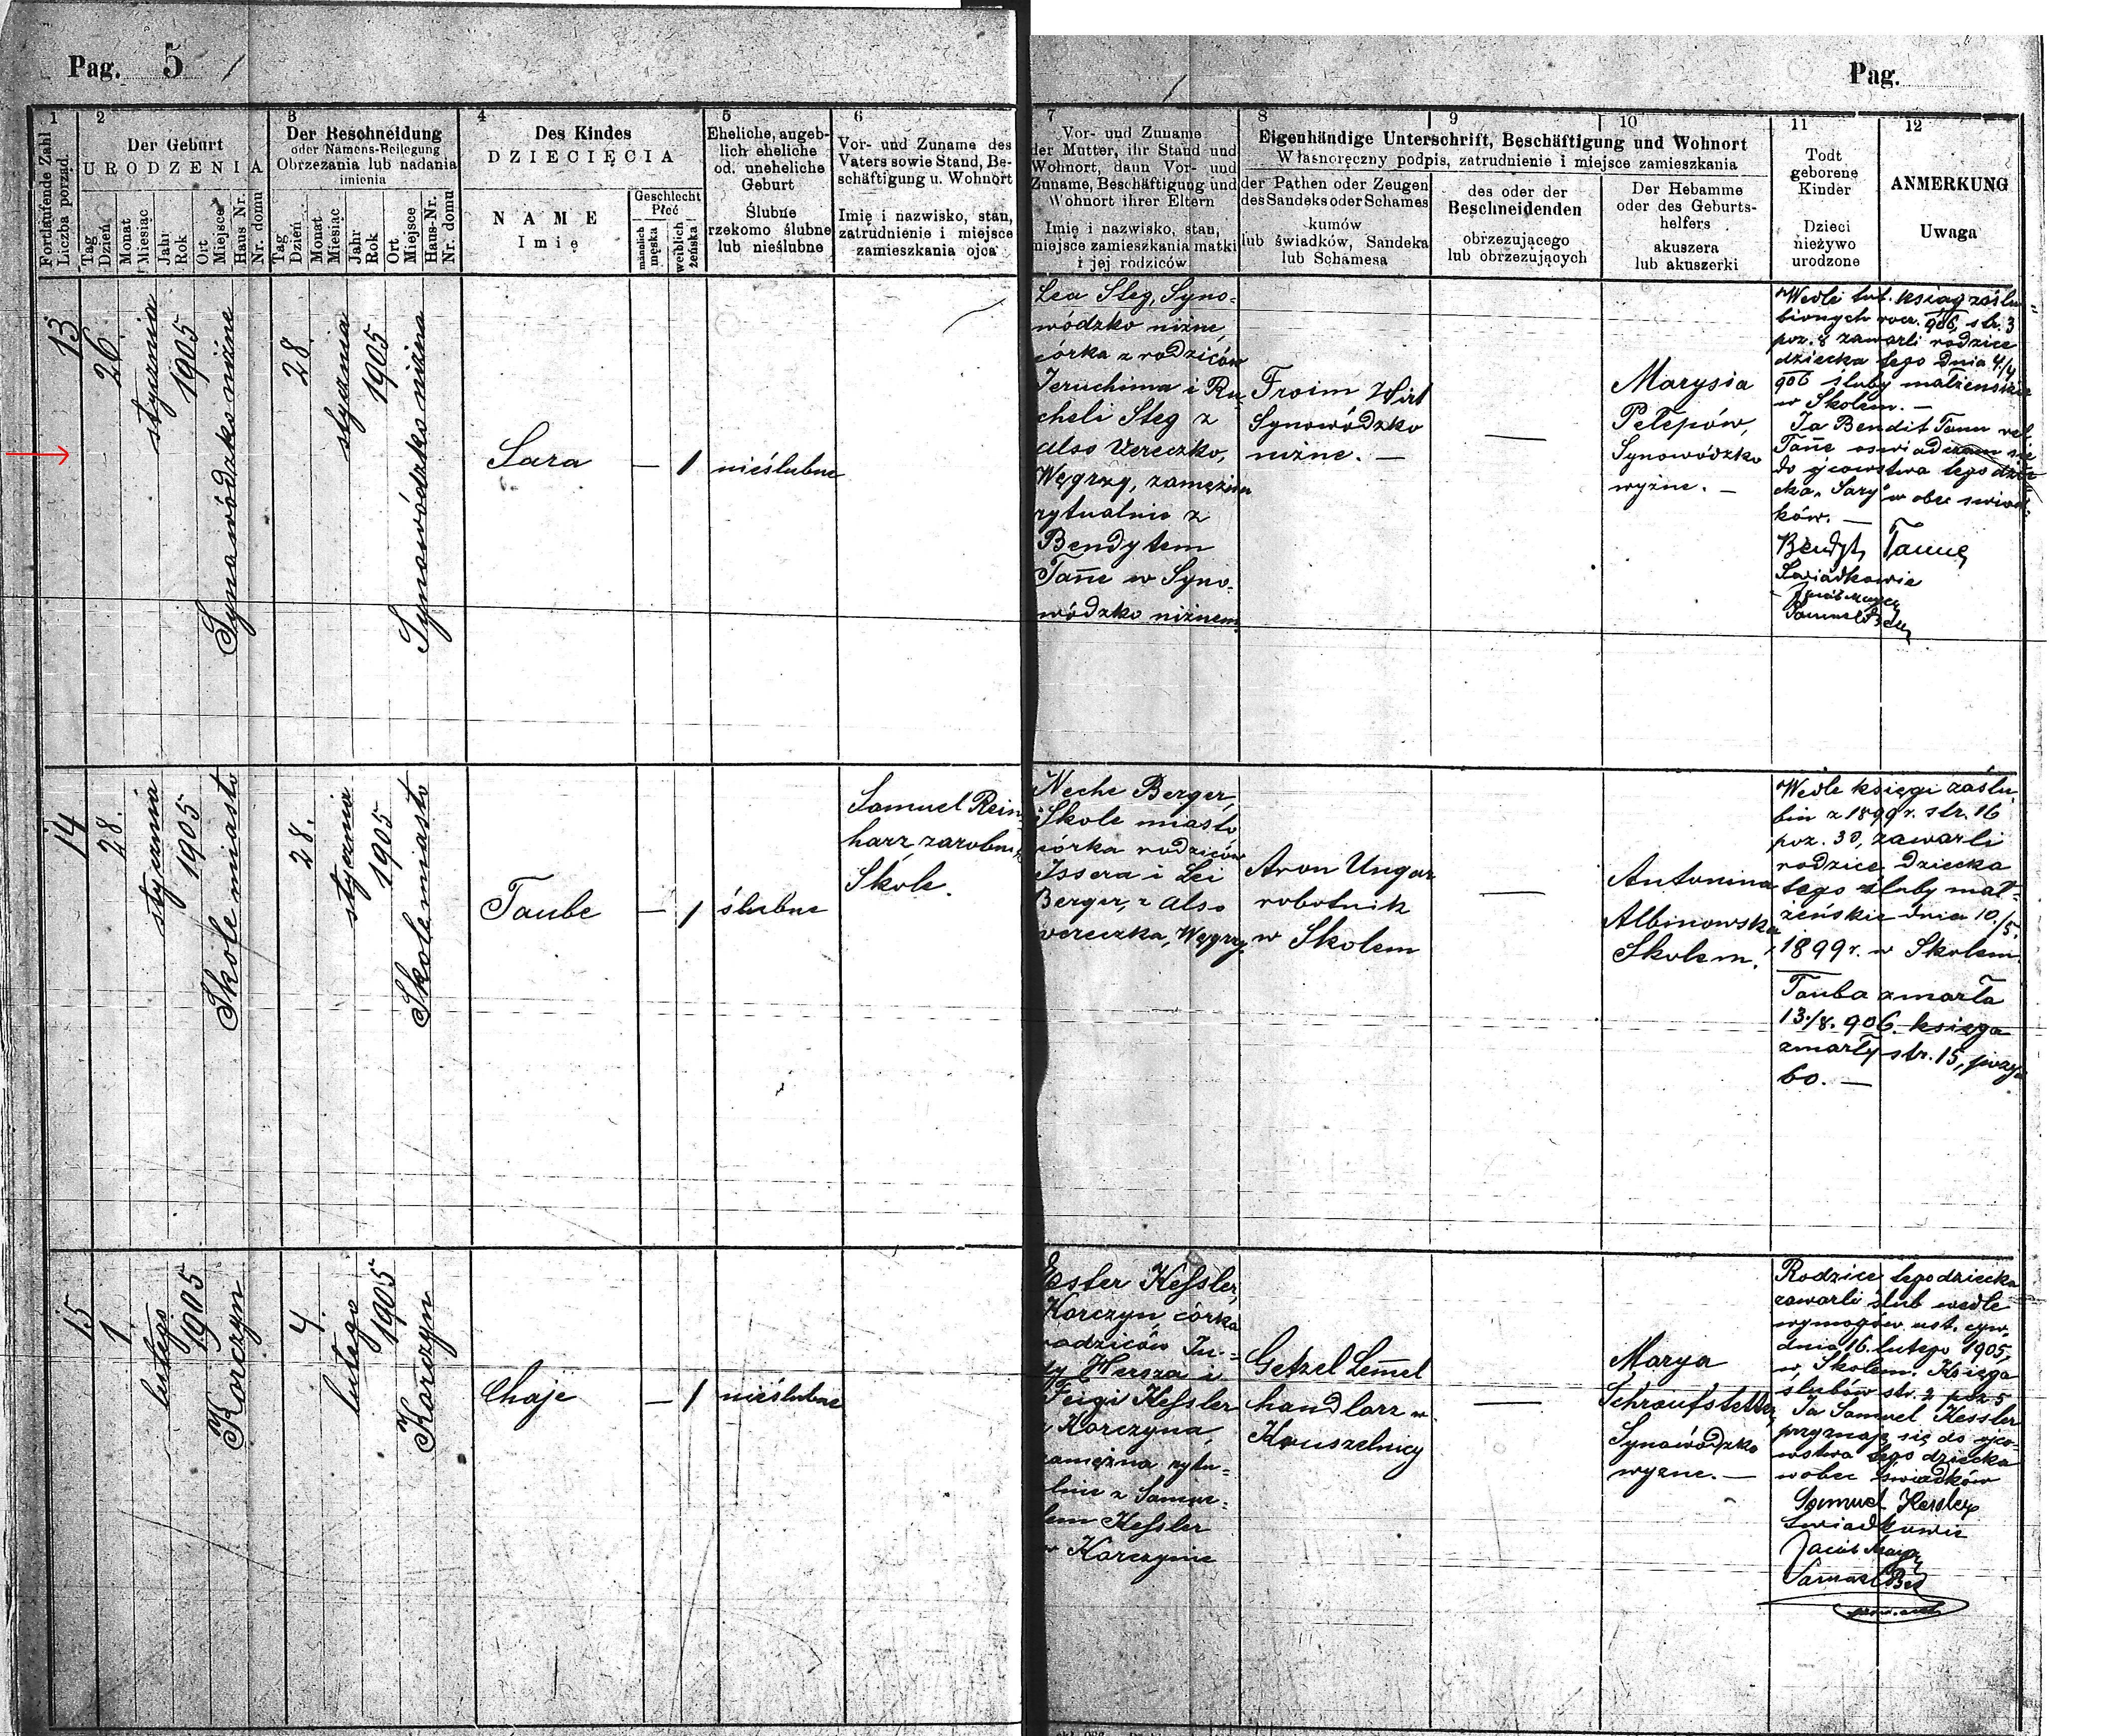 Pag. 5
Pag.
1
2
3
4
5
6
7
8
9
10
11
12
Fortlaufende Zahl
Liczba porząd.
Der Geburt
URODZENIA
Tag
Dzień
Monat
Miesiąc
Jahr
Rok
Ort
Miejsce
Haus Nr.
Nr. domu
Der Beschneidung
oder Namens-Beilegung
Obrzezania lub nadania
imienia
Tag
Dzień
Monat
Miesiąc
Jahr
Rok
Ort
Miejsce
Haus-Nr.
Nr. domu
Des Kindes
DZIECIĘCIA
NAME
Imię
Geschlecht
Płeć
männlich
męska
weiblich
żeńska
Eheliche, angeb-
lich eheliche
od. uneheliche
Geburt
Ślubne
rzekomo ślubne
lub nieślubne
Vor- und Zuname des
Vaters sowie Stand, Be-
schäftigung u. Wohnort
Imię i nazwisko, stan,
zatrudnienie i miejsce
zamieszkania ojca
Vor- und Zuname
der Mutter, ihr Stand und
Wohnort, dann Vor- und
Zuname, Beschäftigung und
Wohnort ihrer Eltern
Imię i nazwisko, stan,
miejsce zamieszkania matki
i jej rodziców
Eigenhändige Unterschrift, Beschäftigung und Wohnort
Własnoręczny podpis, zatrudnienie i miejsce zamieszkania
der Pathen oder Zeugen
des Sandeks oder Schames
kumów
lub świadków, Sandeka
lub Schamesa
des oder der
Beschneidenden
obrzezującego
lub obrzezujących
Der Hebamme
oder des Geburts-
helfers
akuszera
lub akuszerki
Todt
geborene
Kinder
Dzieci
nieżywo
urodzone
ANMERKUNG
Uwaga
13
26.
stycznia
1905
Synowódzko niżne
28.
stycznia
1905
Synowódzko niżne
Sara
— 1
nieślubne
Lea Steg, Syno=
wódzko niżne,
córka z rodziców
Jeruchima i Ru
cheli Steg z
also Vereczko,
Węgrzy, zamężna
rytualnie z
Bendytem
Tanne w Syno-
wódzko niżnem.
Froim Wirt
Synowódzko
niżne. —
—
Marysia
Pelepów,
Synowódzko
wyżne. —
Wedle tut. ksiąg zaślu=
bionych rocz. 906, str. 3
poz. 8 zawarli rodzice
dziecka tego dnia 4/4
906 śluby małżeńskie
w Skolem. —
Ja Bendit Tanne vel
Tanne oświadczam się
do ojcowstwa tego dzie
cka „Sary" w obec świad=
ków. —
Bendyt Tanne
Świadkowie
14
28.
stycznia
1905
Skole miasto
28.
stycznia
1905
Skole miasto
Taube
— 1
ślubne
Samuel Rein
harz, zarobnik
Skole.
Neche Berger,
Skole miasto
córka rodziców
Issera i Lei
Berger, z also
vereczka, Węgrzy.
Aron Ungar
robotnik
w Skolem
—
Antonina
Albinowska
Skolem.
Wedle księgi zaślu
bin z 1899 r. str. 16
poz. 30, zawarli
rodzice dziecka
tego śluby mał=
żeńskie dnia 10./5.
1899 r. w Skolem.
Tauba zmarła
13./8. 906. księga
zmarły str. 15, pozyc
60. —
15
1.
lutego
1905
Korczyn
4.
lutego
1905
Korczyn
Chaje
— 1
nieślubne
Ester Kessler,
Korczyn, córka
rodziców Ju-
dy Hersza i
Feigi Kessler
z Korczyna,
zamężna rytu=
alnie z Samue-
lem Kessler
w Korczynie
Getzel Lemel
handlarz w
Kruszelnicy
—
Marya
Schraufstetter
Synowódzko
wyżne. —
Rodzice tego dziecka
zawarli ślub wedle
wymogów ust. cyw.
dnia 16. lutego 1905,
w Skolem. Księga
ślubów str. 2 poz. 5
Ja Samuel Kessler
przyznaję się do ojco-
wstwa tego dziecka
wobec świadków
Samuel Kessler
Świadkowie